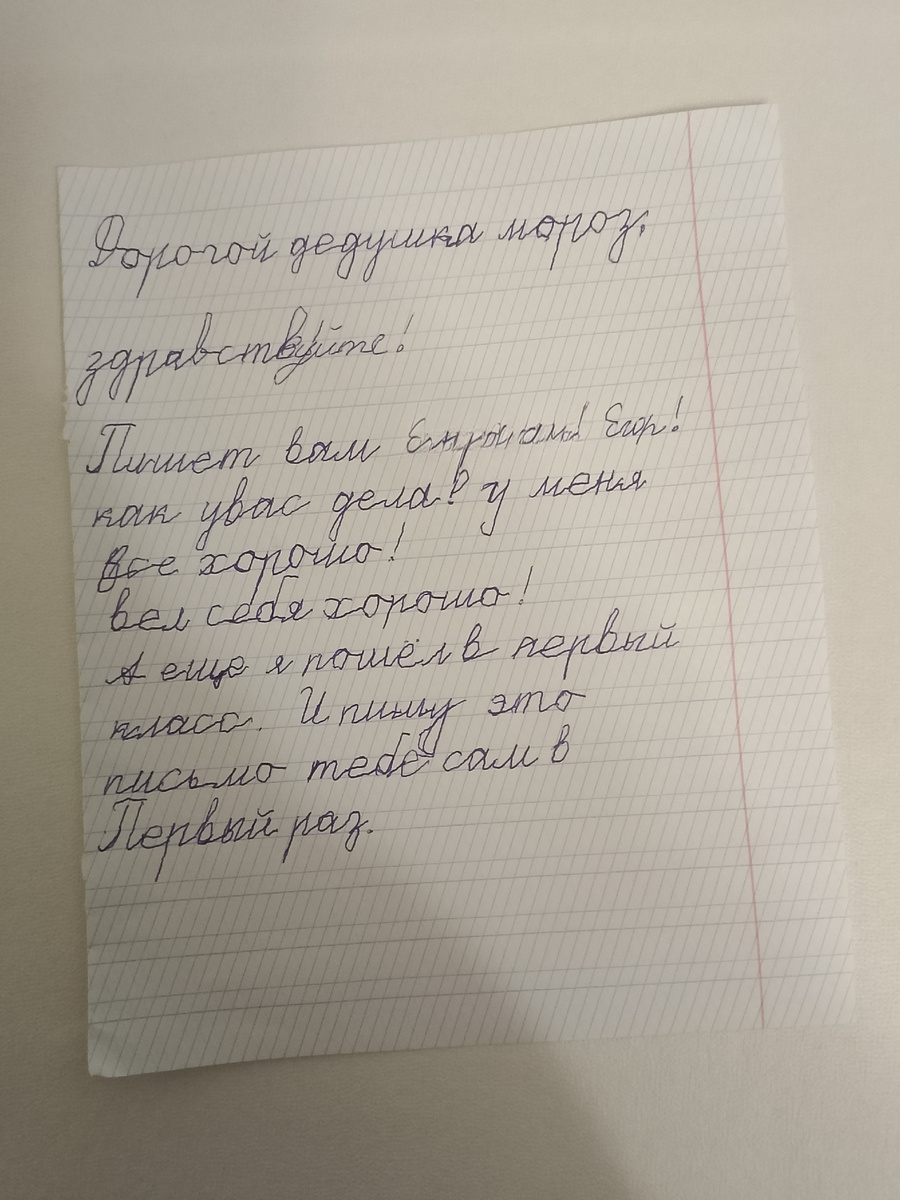 Дорогой дедушка мороз.
здравствуйте!
Пишет вам Егор!
как увас дела? у меня
Все хорошо!
вел себя хорошо!
А еще я пошёл в первый
класс. И пишу это
письмо тебе сам в
Первый раз.